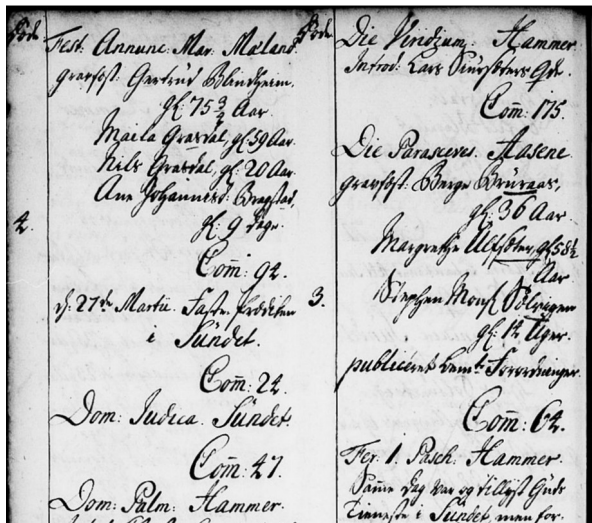 Døde
Fest: Annunc: Mar: Mæland.
gravfæst: Gertrud Blindheim.
gl: 75 3/4 Aar
Marta Grasdal, gl 59 Aar.
Nils Grasdal, gl: 20 Aar.
Ane Johannesd: Bragstad,
4.
gl: 9 Dage.
Com̄: 92.
d: 27de Martii. Faste Prædiken
i Sundet.
Com̄: 22.
Dom: Judica. Sundet.
Com̄: 47.
Dom: Palm: Hammer.
Døde
Die Viridium. Hammer.
Introd: Lars
Com̄: 175.
Die Parasceves. Aasene.
gravfæst: Børge
gl: 36 Aar.
Margrethe gl 58 1/2
Aar
3.
Stephen Mons:
gl: 12 Uger.
publiceret bem:te Forordninger.
Com̄: 62.
Fer: 1. Pasch: Hammer.
Samme Dag var og tillyst Guds
Tieneste i Sundet, men for-